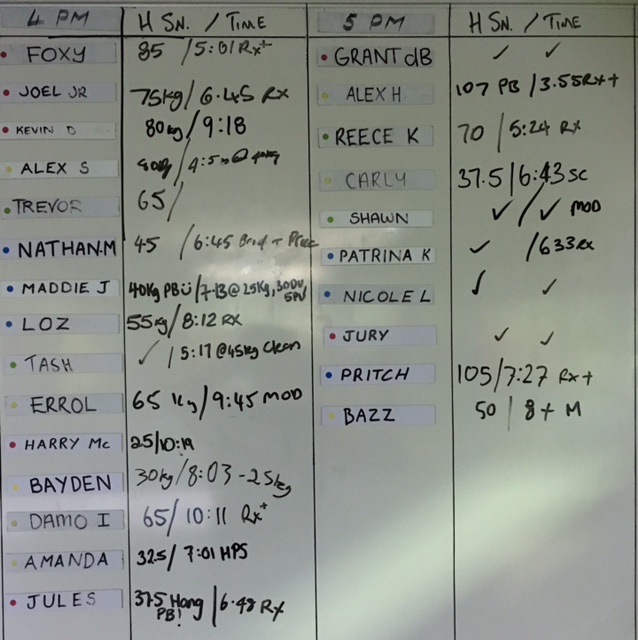 4 PM H SN. / TIME
FOXY 85 / 5:01 Rx+
JOEL JR 75kg / 6.45 RX
KEVIN D 80kg / 9:18
ALEX S / 4:5
TREVOR 65 /
NATHAN.M 45 / 6:45
MADDIE J 40kg PB / 7:13 @ 25kg, 30DU,
LOZ 55kg / 8:12 RX
TASH ✓ / 5:17 @45kg Clean
ERROL 65 kg / 9:45 MOD
HARRY Mc 25/10:19
BAYDEN 30kg / 8:03 - 25kg
DAMO I 65 / 10:11 Rx+
AMANDA 32.5 / 7:01 HPS
JULES 37.5 Hang / 6.48 RX
PB!
5 PM H SN. / TIME
GRANT dB ✓ ✓
ALEX H 107 PB / 3.55 RX+
REECE K 70 / 5:24 RX
CARLY 37.5 / 6:43 SC
SHAWN ✓ / ✓ MOD
PATRINA K ✓ / 633 Rx
NICOLE L ✓ ✓
JURY ✓ ✓
PRITCH 105 / 7:27 Rx+
BAZZ 50 / 8+ M